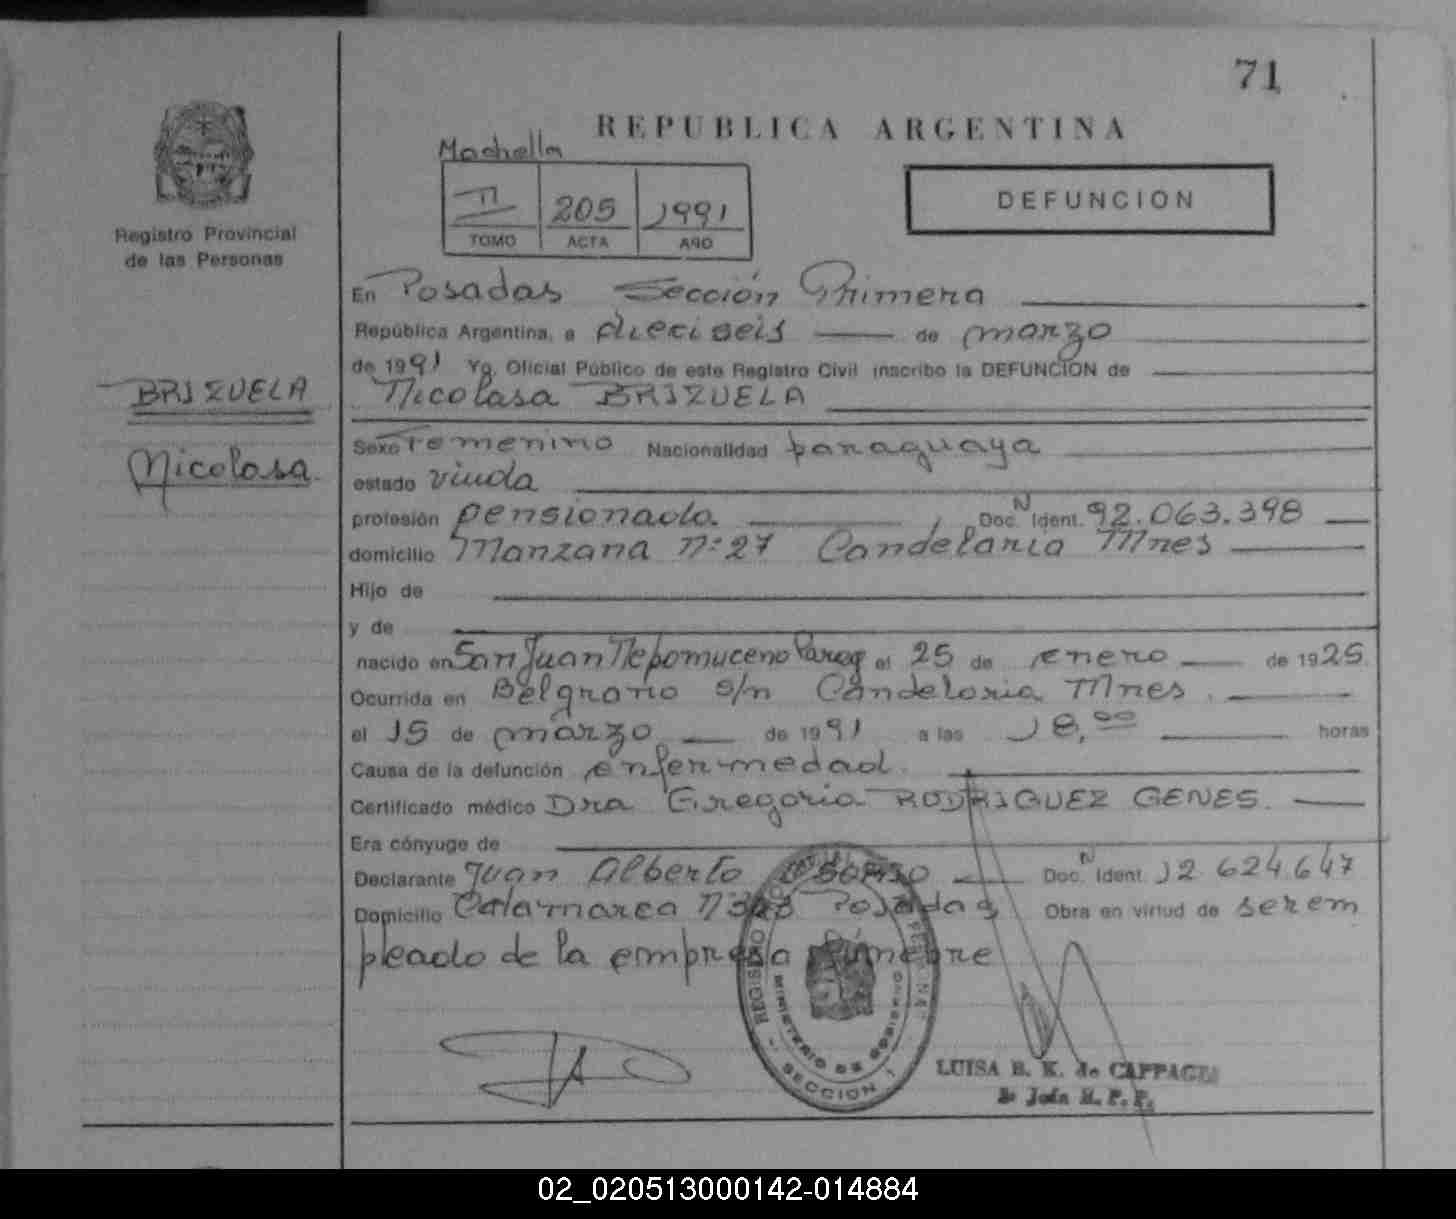 71
REPUBLICA ARGENTINA
Machella
II 205 1991
TOMO ACTA AÑO
DEFUNCION
Registro Provincial
de las Personas
BRIZUELA
Nicolasa
En Posadas Sección Primera
República Argentina, a dieciseis de marzo
de 1991 Yo, Oficial Público de este Registro Civil inscribo la DEFUNCION de
Nicolasa BRIZUELA
Sexo Femenino Nacionalidad paraguaya
estado viuda
profesión pensionada. Doc. N Ident. 92.063.398
domicilio Manzana Nº 27 Candelaria Mnes
Hijo de
y de
nacido en San Juan Nepomuceno Parag el 25 de enero de 1925
Ocurrida en Belgrano s/n Candelaria Mnes.
el 15 de marzo de 1991 a las 18,00 horas
Causa de la defunción enfermedad.
Certificado médico Dra Gregoria RODRIGUEZ GENES.
Era cónyuge de
Declarante Juan Alberto Doc. N Ident. 12.624.647
Domicilio Catamarca Posadas Obra en virtud de ser em
pleado de la empresa fúnebre
REGISTRO PROVINCIAL DE LAS PERSONAS
MINISTERIO DE GOBIERNO
SECCION 1
LUISA B. K. de
R. P. P.
02_020513000142-014884